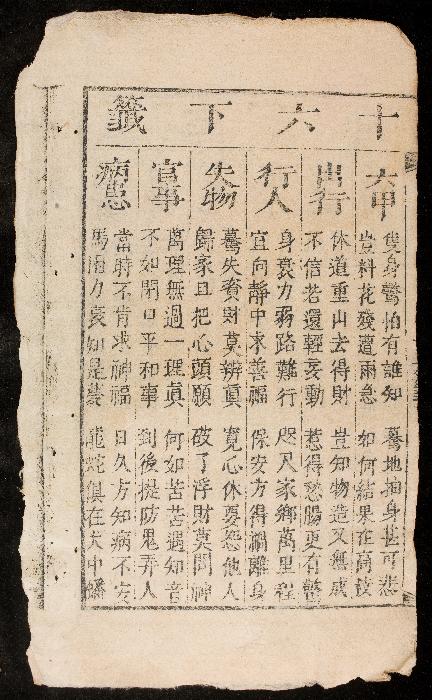 十六下籤
六甲
隻身驚怕有誰知 驀地抽身甚可悲
豈料花殘遭雨急 如何結果在高枝
出行
休道重山去得財 豈知物造又無成
不信若還輕妄動 惹得愁腸更有驚
行人
身衰力弱路難行 咫尺家鄉萬里程
宜向靜中求善福 保安方得禍離身
失物
驀失資財莫辨眞 寬心休要怨他人
歸家且把心頭願 破了浮財莫問神
官事
萬理無過一理眞 何如苦苦遇知音
不如閉口平和事 到後提防鬼弄人
病患
當時不肯求神福 日久方知病不安
馬有力衰如是羙 龍蛇俱在犬中蟠